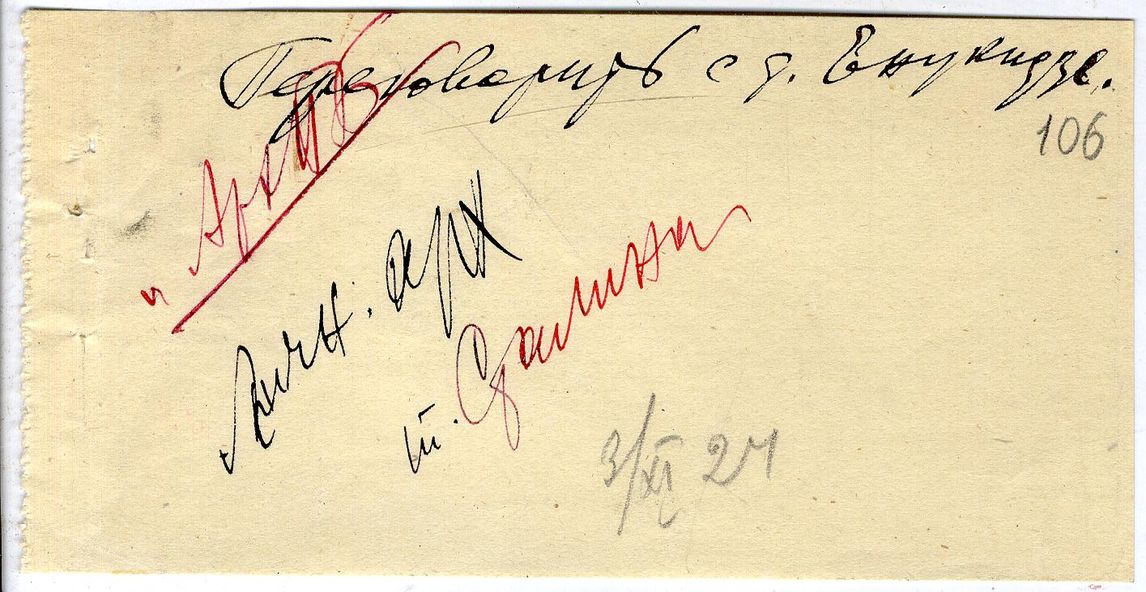 Переговорить с т. Енукидзе.
106
"Арх ПБ
Личн. арх
т. Сталина
3/XI 27